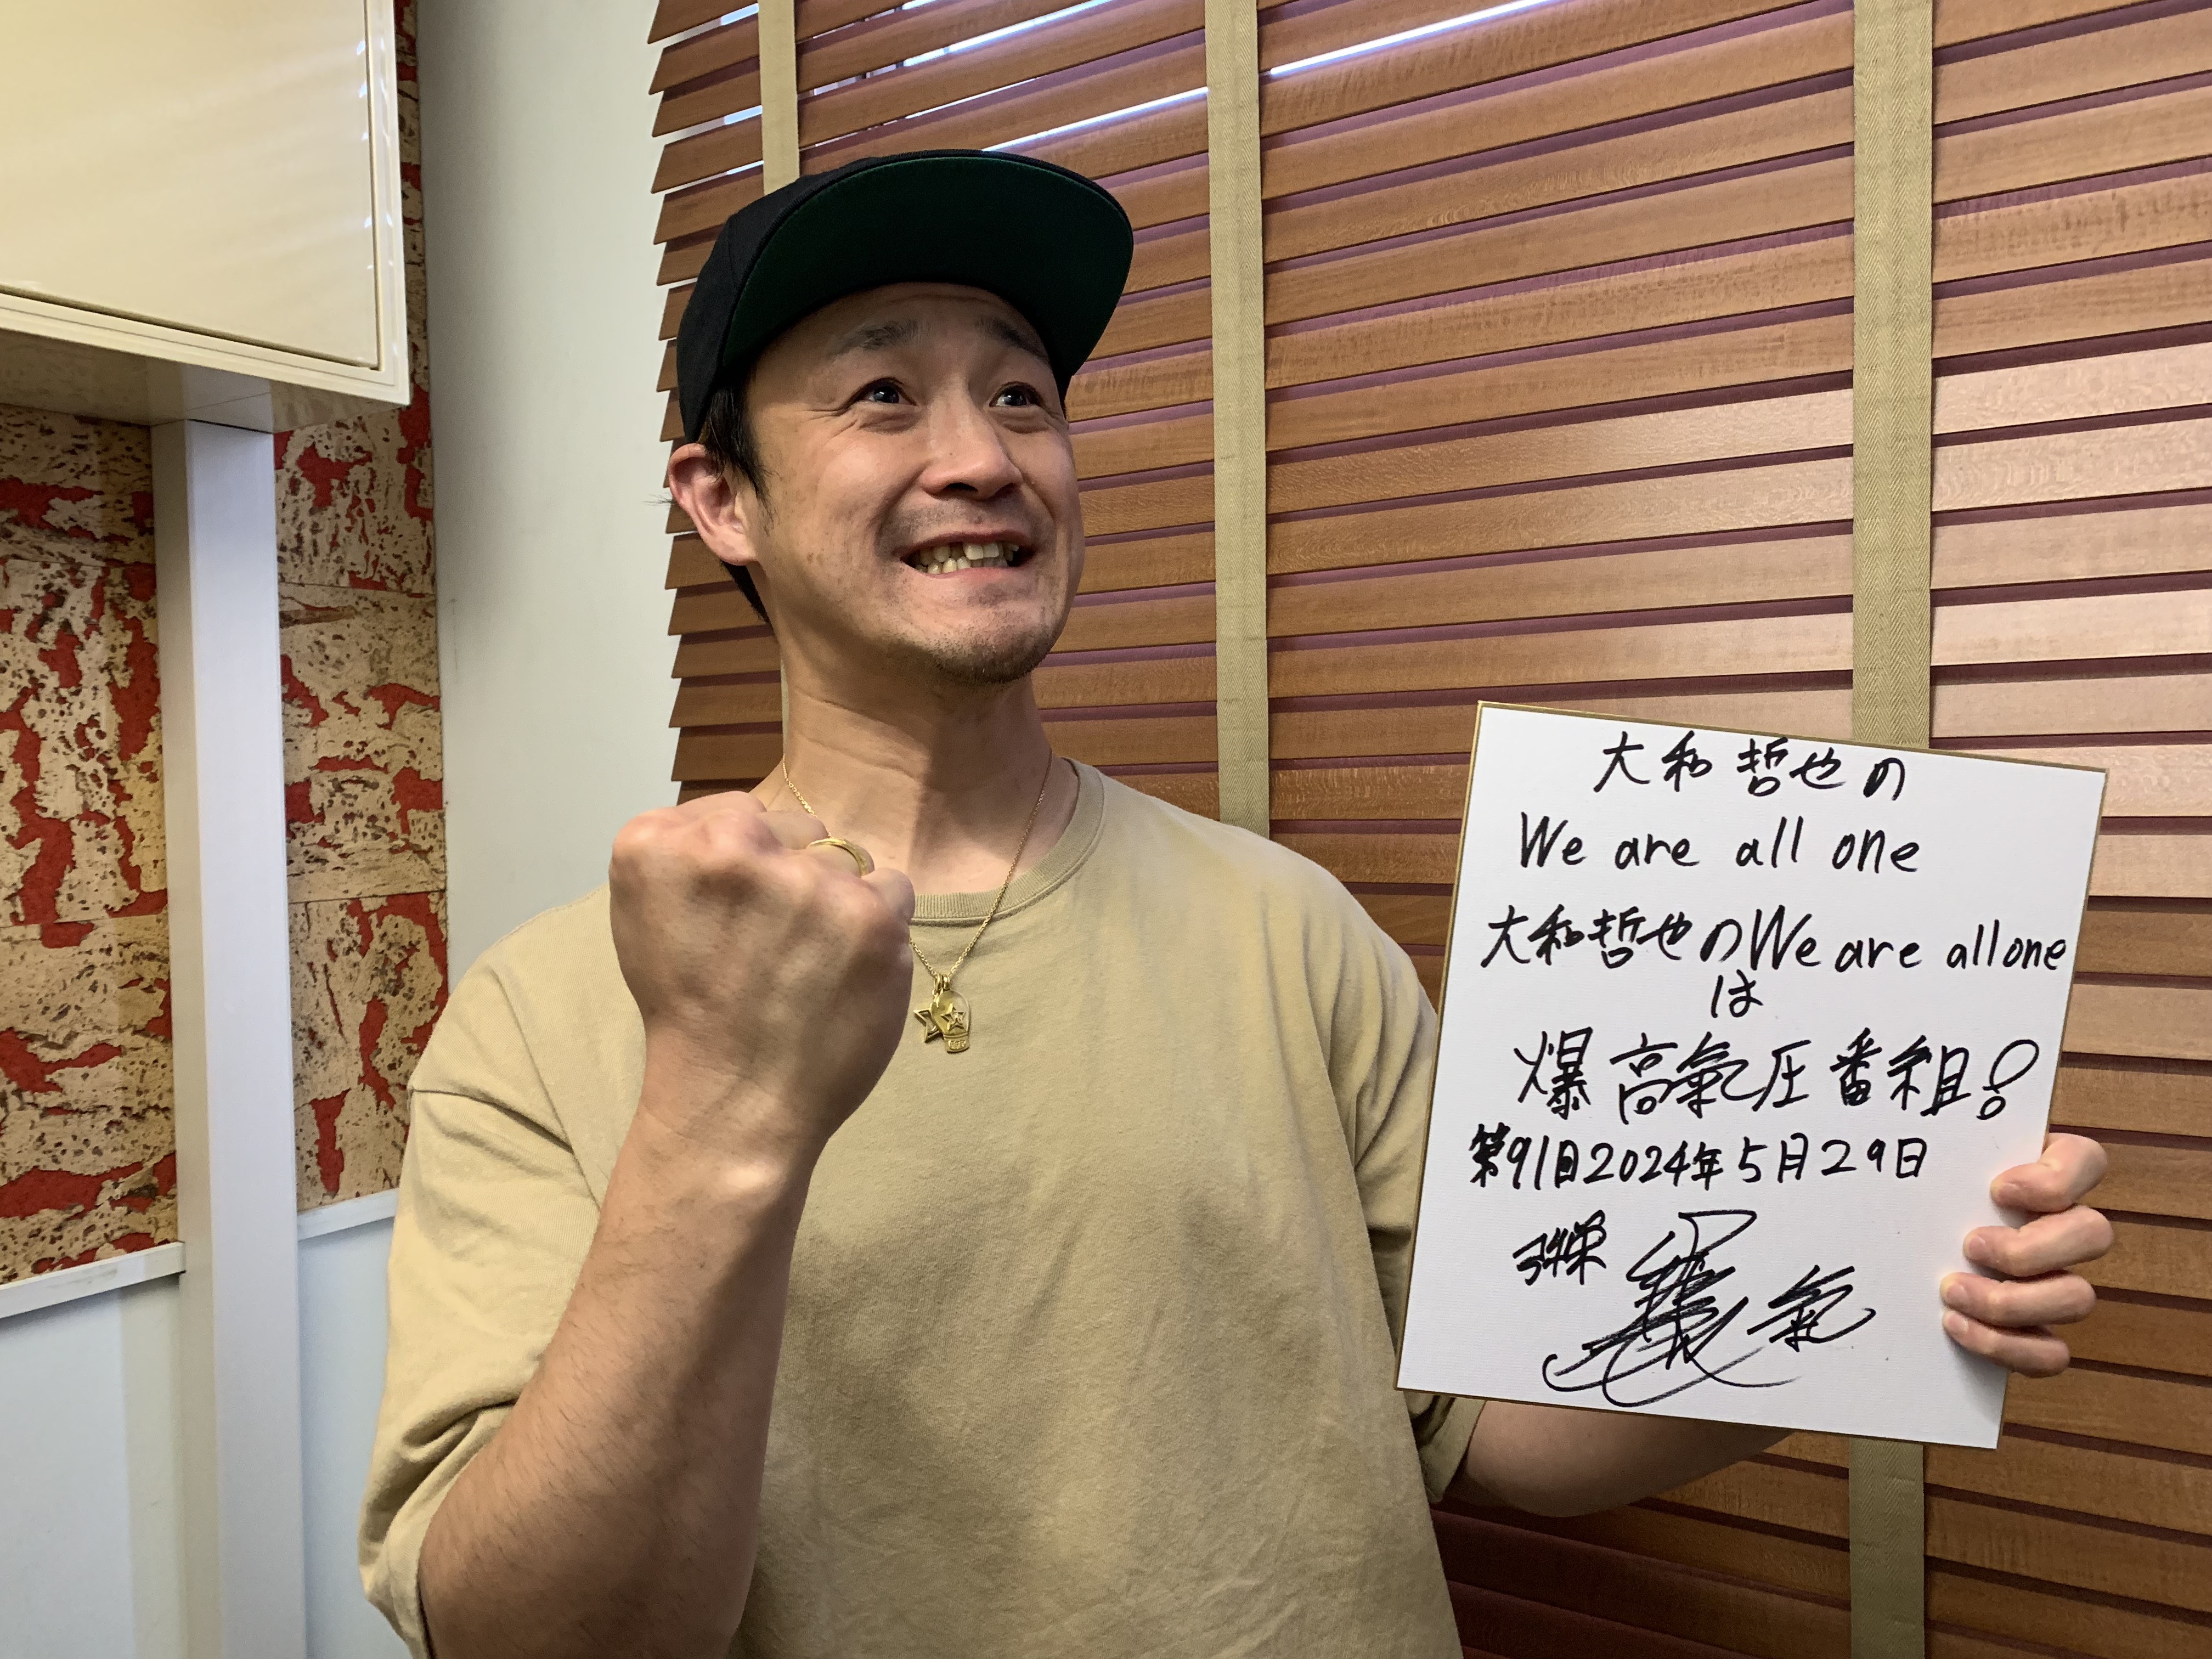 大和哲也の
We are all one
大和哲也のWe are all one
は
爆高氣圧番組!
第91回2024年5月29日
氣